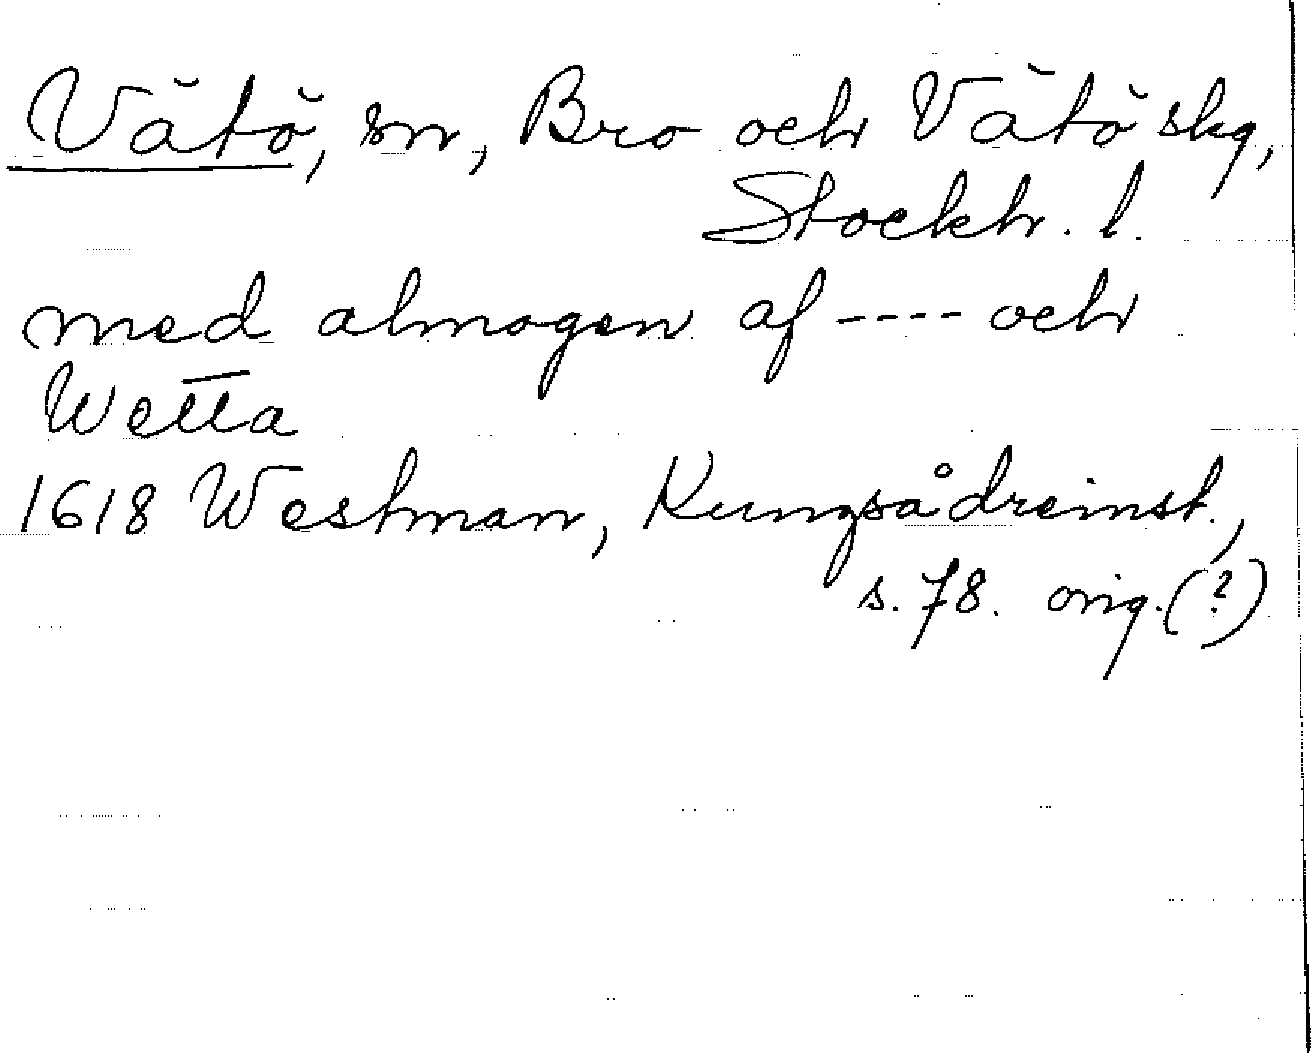 Vätö, sn, Bro och Vätö skg,
Stockh. l.
med almogen af ---- och
Wetta
1618 Westman, Kungsådreinst.,
s. 78. orig. (?)